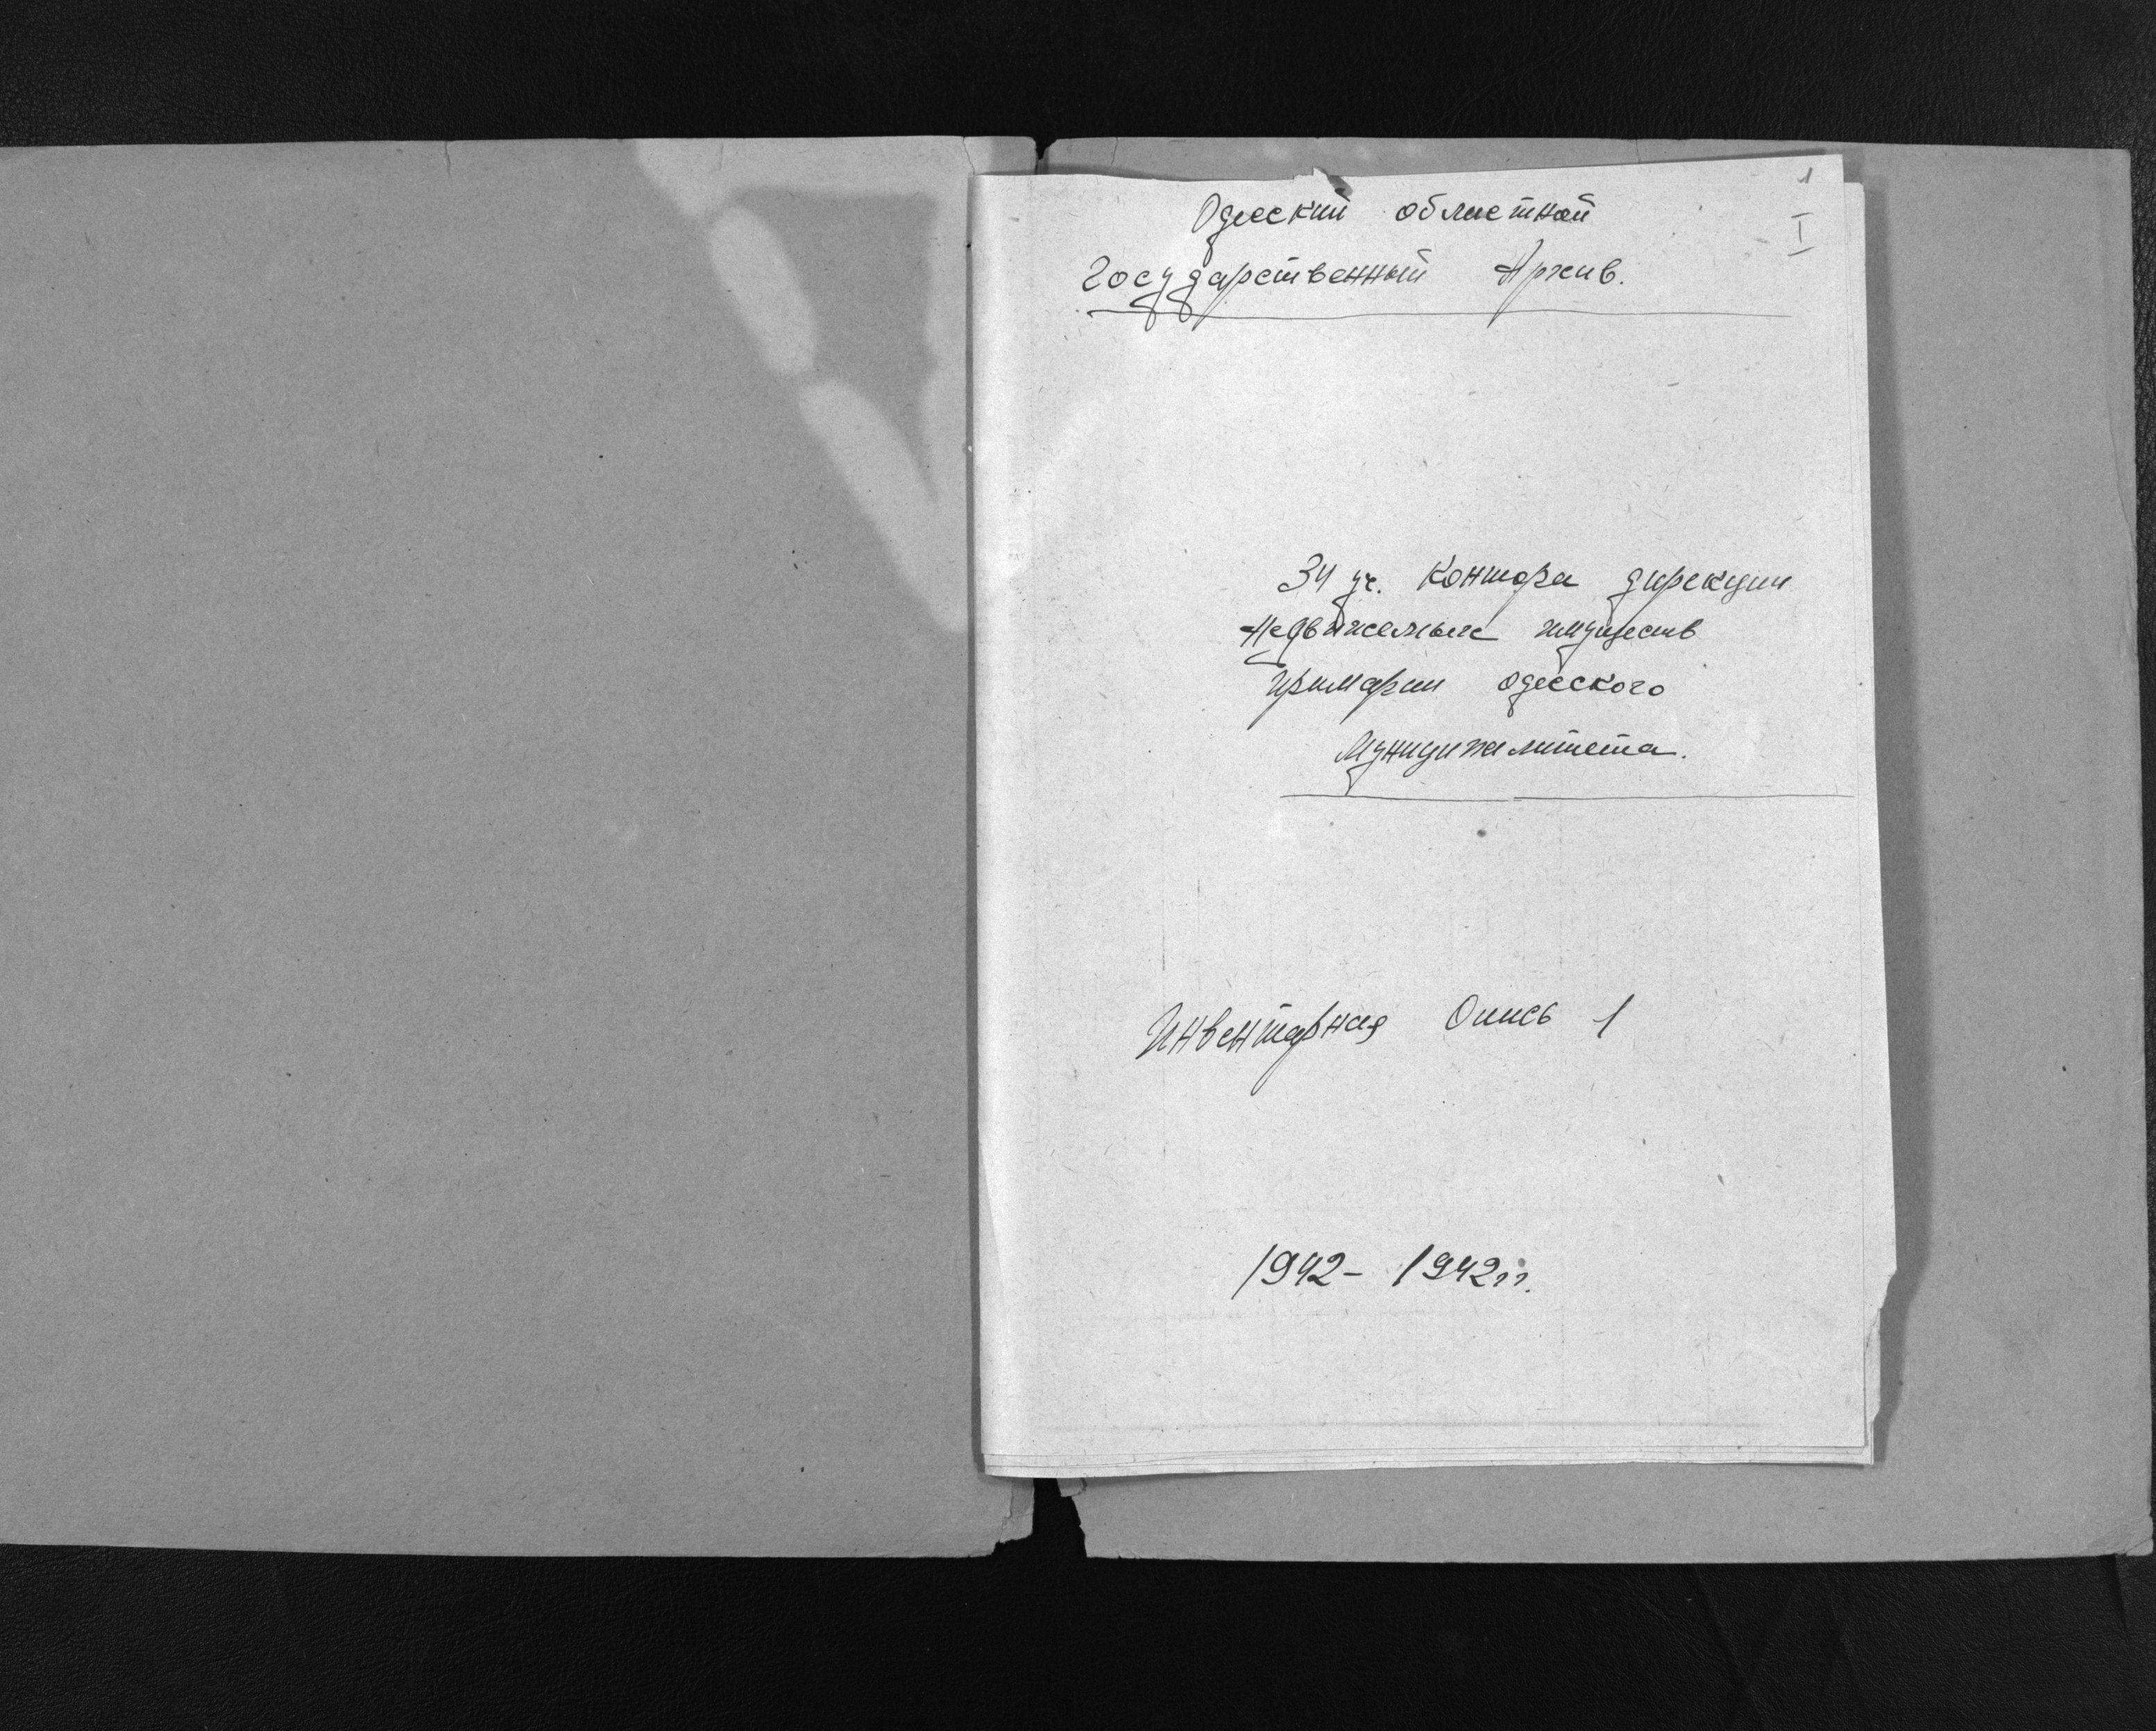 1
I
Одесский областной
Государственный Архив.
34 уч. контора дирекции
Недвижемых имуществ
Примарии одесского
Муниципалитета.
Инвентарная Опись 1
1942 - 1942 гг.